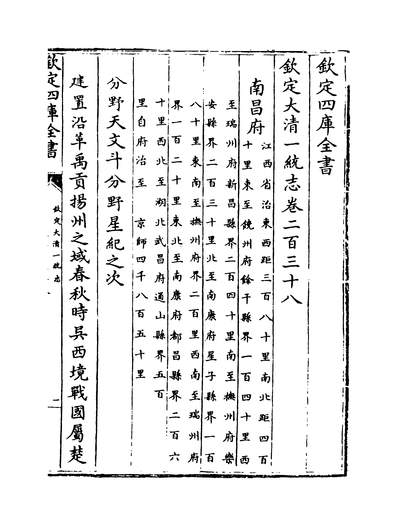 欽定四庫全書
欽定大清一統志卷二百三十八
南昌府
江西省治東西距三百八十里南北距四百
十里東至饒州府餘干縣界一百四十里西
至瑞州府新昌縣界二百四十里南至撫州府樂
安縣界二百三十里北至南康府星子縣界一百
八十里東南至撫州府界二百里西南至瑞州府
界一百二十里東北至南康府都昌縣界二百六
十里西北至湖北武昌府通山縣界五百
里自府治至 京師四千八百五十里
分野天文斗分野星紀之次
建置沿革禹貢揚州之域春秋時吳西境戰國屬楚
欽定四庫全書
欽定大清一統志
一